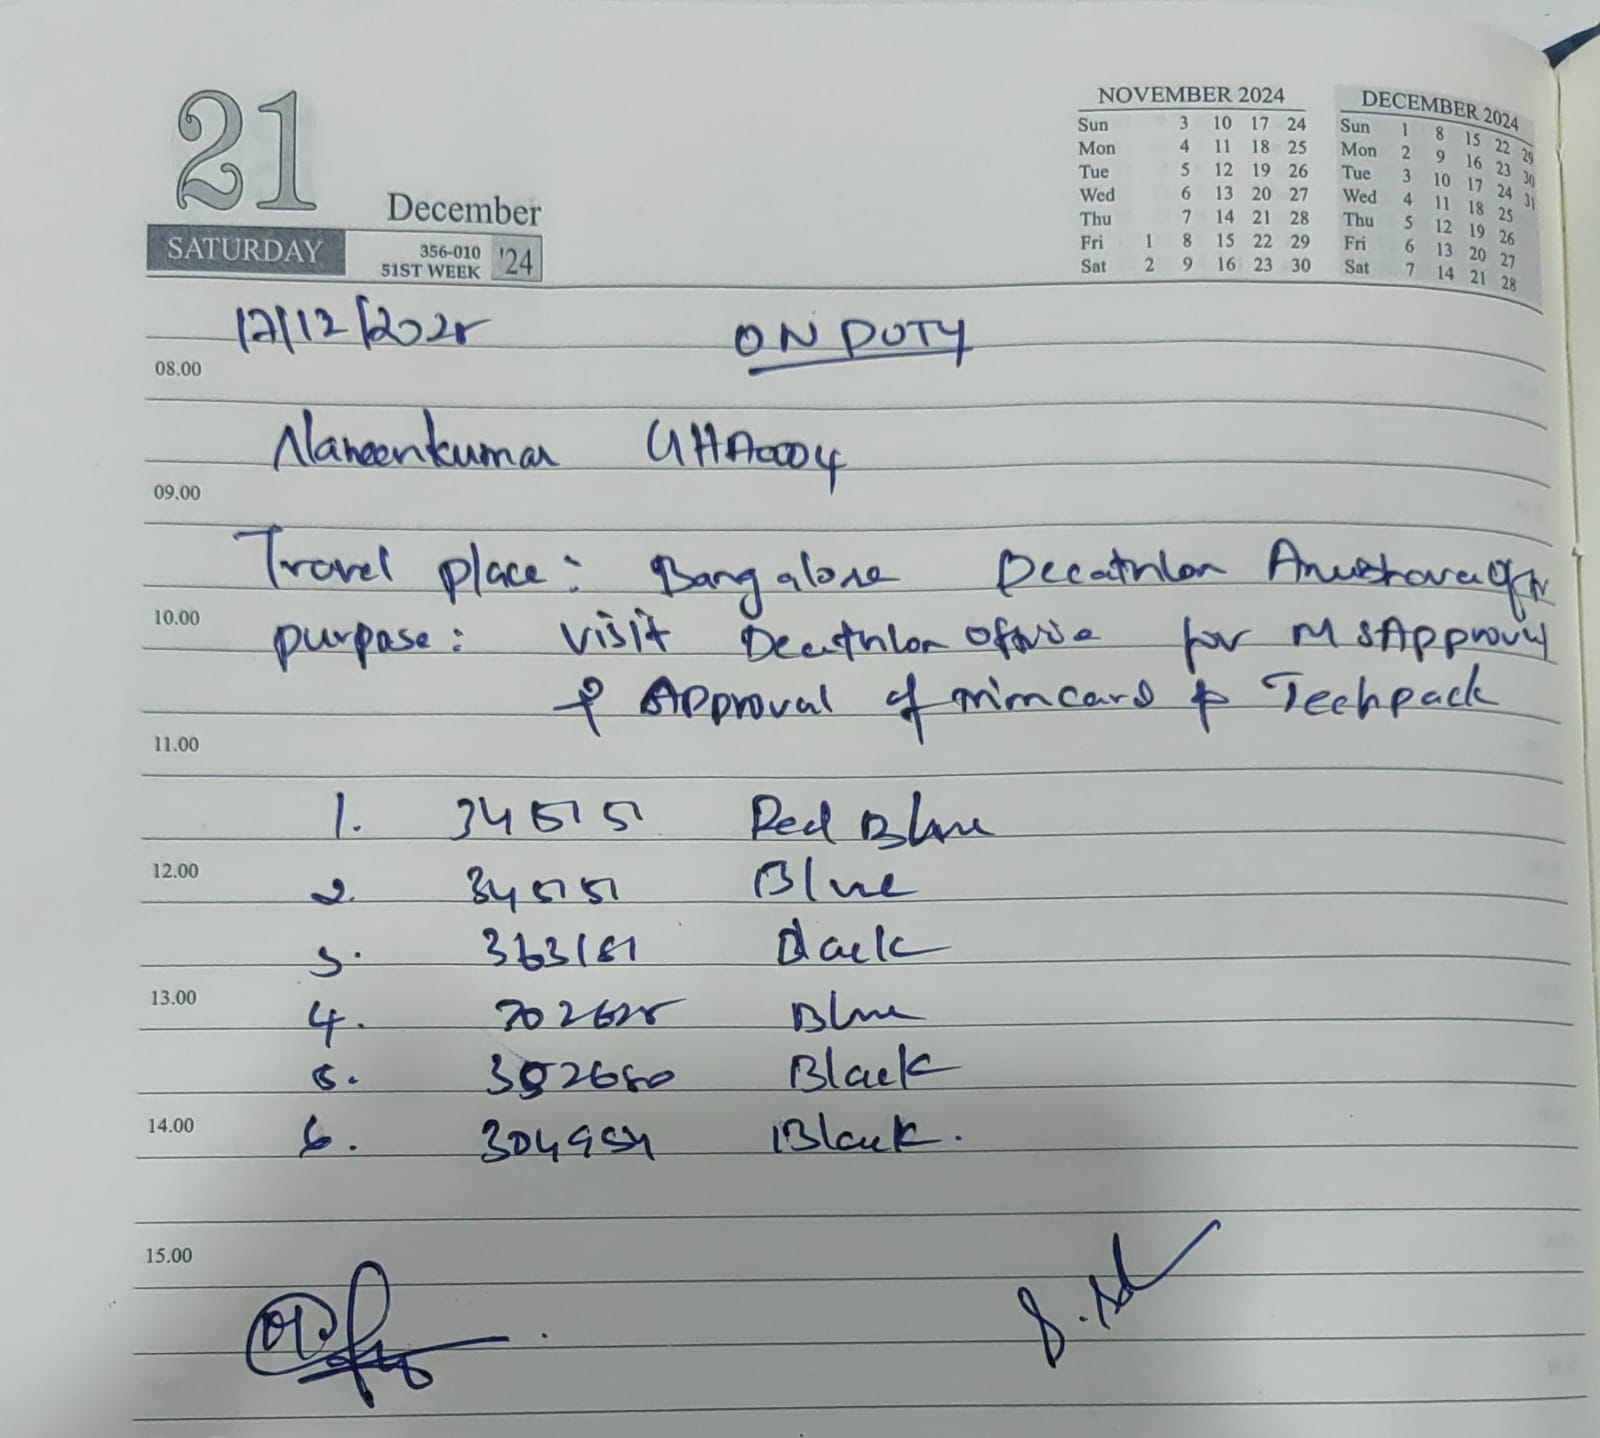 21
December
SATURDAY
356-010
51ST WEEK
'24
NOVEMBER 2024
Sun 3 10 17 24
Mon 4 11 18 25
Tue 5 12 19 26
Wed 6 13 20 27
Thu 7 14 21 28
Fri 1 8 15 22 29
Sat 2 9 16 23 30
DECEMBER 2024
Sun 1 8 15 22 29
Mon 2 9 16 23 30
Tue 3 10 17 24 31
Wed 4 11 18 25
Thu 5 12 19 26
Fri 6 13 20 27
Sat 7 14 21 28
17/12/2025 ON DUTY
08.00
Naveenkumar GHA0004
09.00
Travel place: Bangalore Decathlon
10.00
purpose: visit Decathlon office for MS Approval
& Approval of trimcard & Techpack
11.00
1. 345151 Red Blue
12.00
2. 345151 Blue
3. 363181 Black
13.00
4. Blue
5. 352680 Black
14.00
6. 304954 Black.
15.00